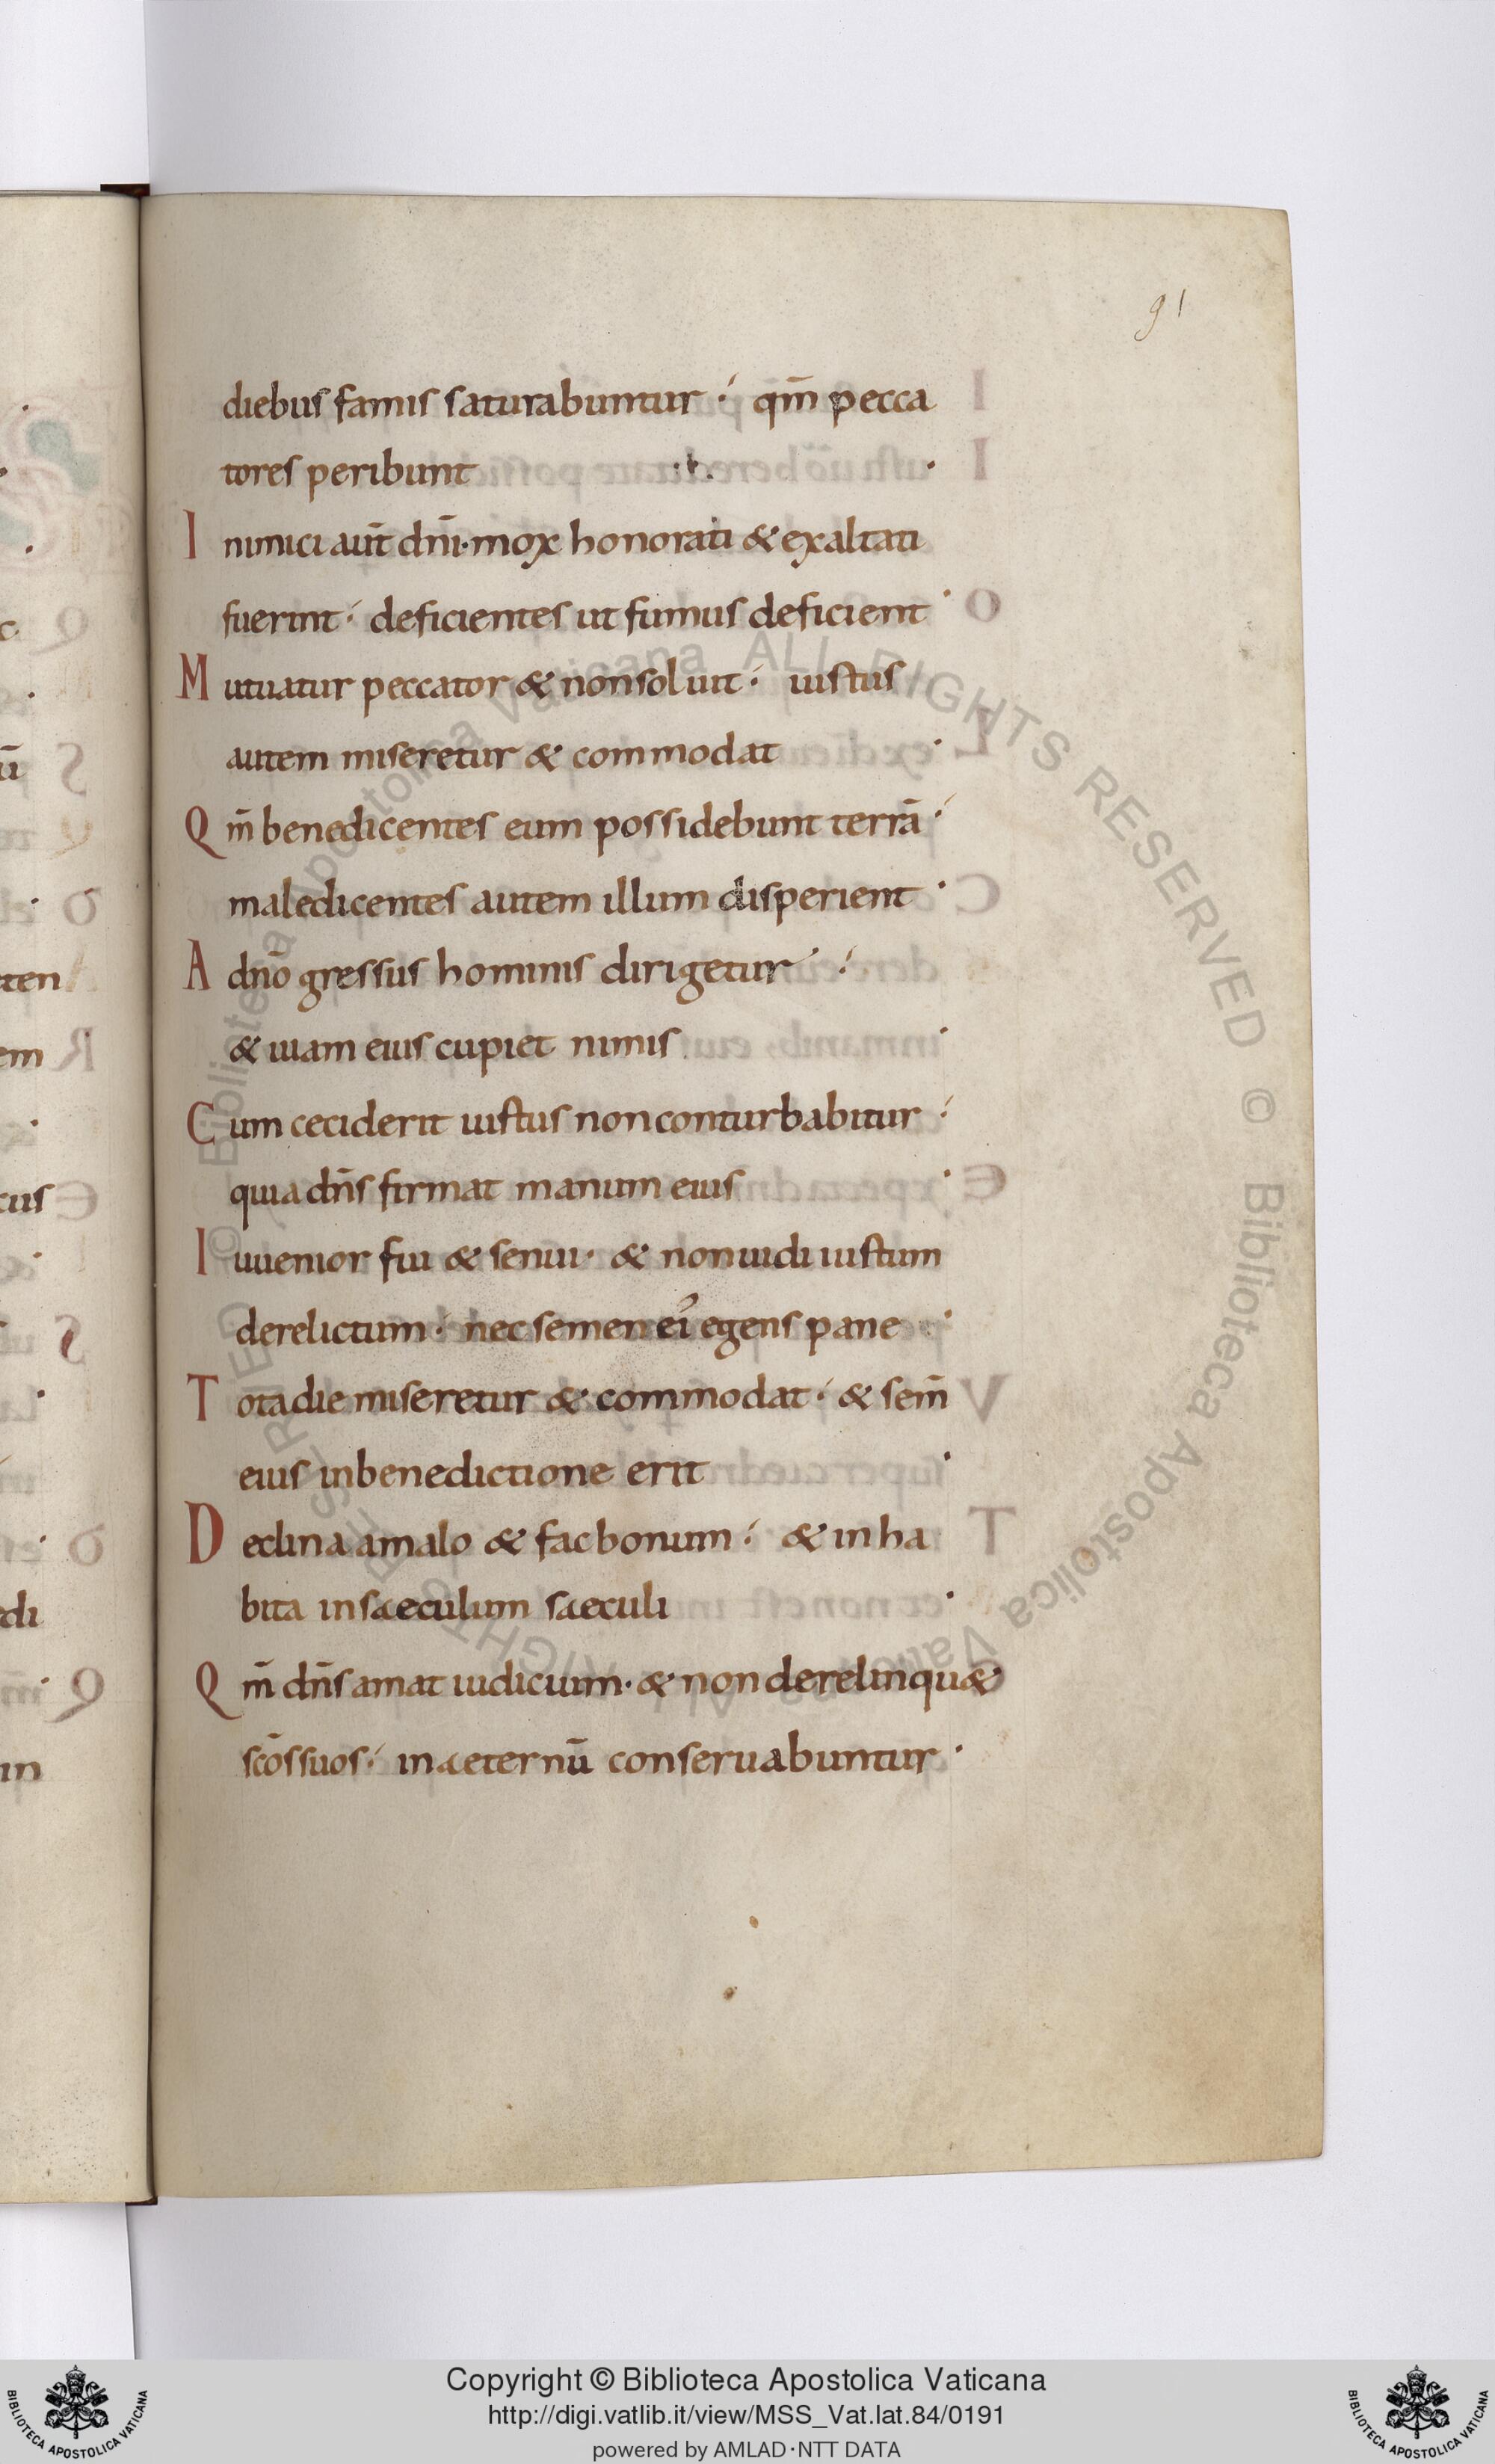 91
diebus famis saturabuntur ·́ qm̄ pecca
tores peribunt ·
I nimici aut̄ dn̄i · mox honorati & exaltati
fuerint ·́ deficientes ut fumus deficient ·
M utuatur peccator & non soluit ·́ iustus
autem miseretur & commodat ·
Q m̄ benedicentes eum possidebunt terrā ·́
maledicentes autem illum disperient ·
A dn̄o gressus hominis dirigetur ·́
& uiam eius cupiet nimis ·
C um ceciderit iustus non conturbabitur ·́
quia dn̄s firmat manum eius ·
I uuenior fui & senui · & non uidi iustum
derelictum ·́ nec semen ei᾽ egens pane ·
T ota die miseretur & commodat ·́ & sem̄
eius in benedictione erit ·
D eclina a malo & fac bonum ·́ & inha
bita in saeculum saeculi ·
Q m̄ dn̄s amat iudicium · & non derelinqu&
sc̄os suos ·́ in aeternū conseruabuntur ·
Biblioteca Apostolica Vaticana ALL RIGHTS RESERVED ©
Copyright © Biblioteca Apostolica Vaticana
http://digi.vatlib.it/view/MSS_Vat.lat.84/0191
powered by AMLAD·NTT DATA
BIBLIOTECA APOSTOLICA VATICANA
BIBLIOTECA APOSTOLICA VATICANA